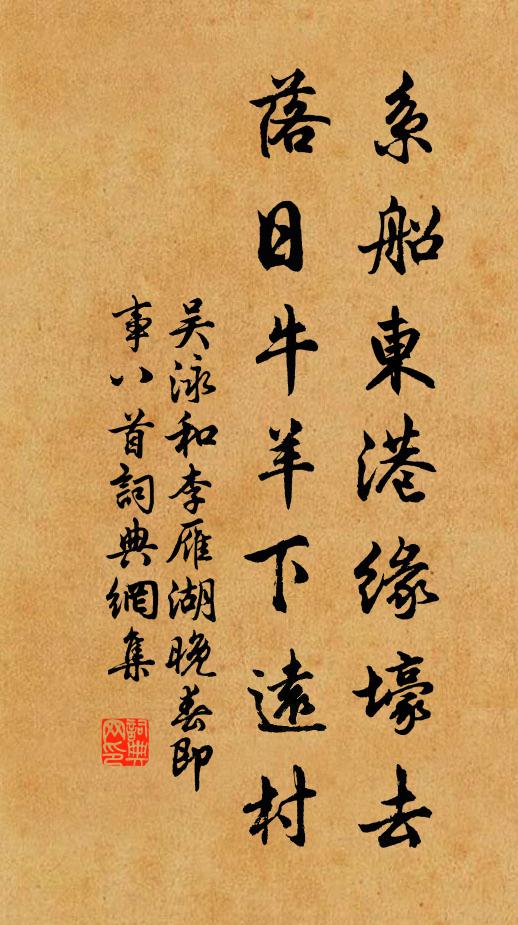 系船東港緣壕去
落日牛羊下遠村
吴泳和李雁湖晚春即
事八首詞典網集
詞典
网印